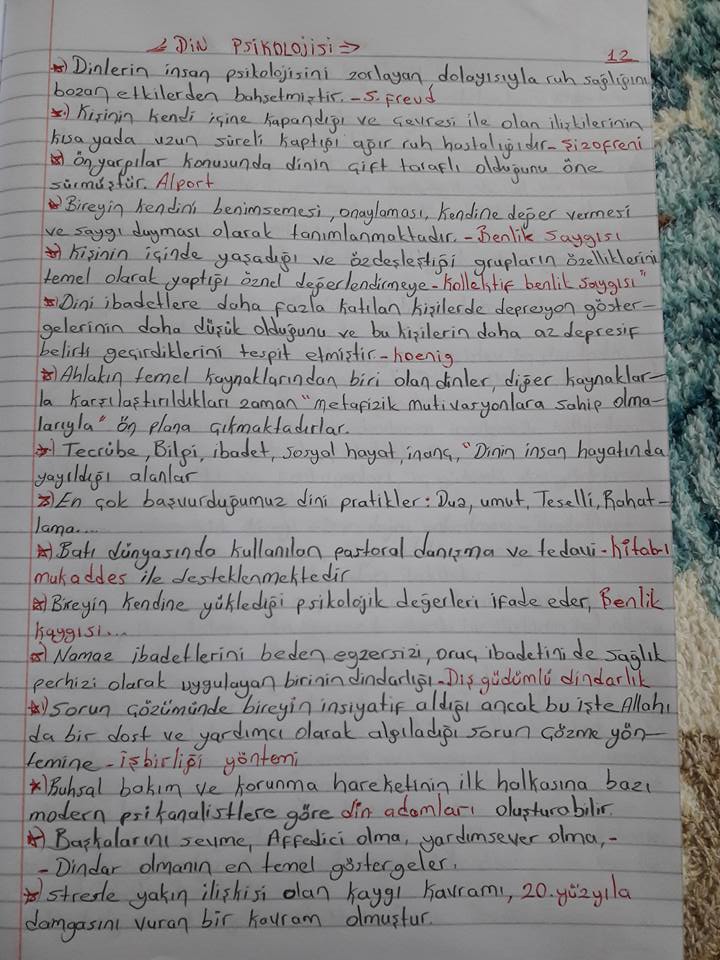 DİN PSİKOLOJİSİ => 12
*) Dinlerin insan psikolojisini zorlayan dolayısıyla ruh sağlığını
bozan etkilerden bahsetmiştir. - S. freud
*) Kişinin kendi içine kapandığı ve çevresi ile olan ilişkilerinin
kısa yada uzun süreli kaptığı ağır ruh hastalığıdır - Şizofreni
*) önyargılar konusunda dinin çift taraflı olduğunu öne
sürmüştür. Alport
*) Bireyin kendini benimsemesi, onaylaması, kendine değer vermesi
ve saygı duyması olarak tanımlanmaktadır. - Benlik saygısı
*) Kişinin içinde yaşadığı ve özdeşleştiği grupların özelliklerini
temel olarak yaptığı öznel değerlendirmeye - kollektif benlik saygısı"
*) Dini ibadetlere daha fazla katılan kişilerde depresyon göster-
gelerinin daha düşük olduğunu ve bu kişilerin daha az depresif
belirti geçirdiklerini tespit etmiştir - hoenig
*) Ahlakın temel kaynaklarından biri olan dinler, diğer kaynaklar-
la karşılaştırıldıkları zaman "metafizik mutivasyonlara sahip olma-
larıyla" ön plana çıkmaktadırlar.
*) Tecrübe, Bilgi, ibadet, sosyal hayat, inanç, "Dinin insan hayatında
yayıldığı alanlar
*) En çok başvurduğumuz dini pratikler: Dua, umut, Teselli, Rahat-
lama....
*) Batı dünyasında kullanılan pastoral danışma ve tedavi - kitabı
mukaddes ile desteklenmektedir
*) Bireyin kendine yüklediği psikolojik değerleri ifade eder, Benlik
kaygısı...
*) Namaz ibadetlerini beden egzersizi, oruç ibadetini de sağlık
perhizi olarak uygulayan birinin dindarlığı - Dış güdümlü dindarlık
*) Sorun çözümünde bireyin insiyatif aldığı ancak bu işte Allahı
da bir dost ve yardımcı olarak algıladığı sorun çözme yön-
temine - işbirliği yöntemi
*) Buhsal bakım ve korunma hareketinin ilk halkasına bazı
modern psikanalistlere göre din adamları oluşturabilir.
*) Başkalarını sevme, Affedici olma, yardımsever olma, -
- Dindar olmanın en temel göstergeler.
*) stresle yakın ilişkisi olan kaygı kavramı, 20. yüzyıla
damgasını vuran bir kavram olmuştur.